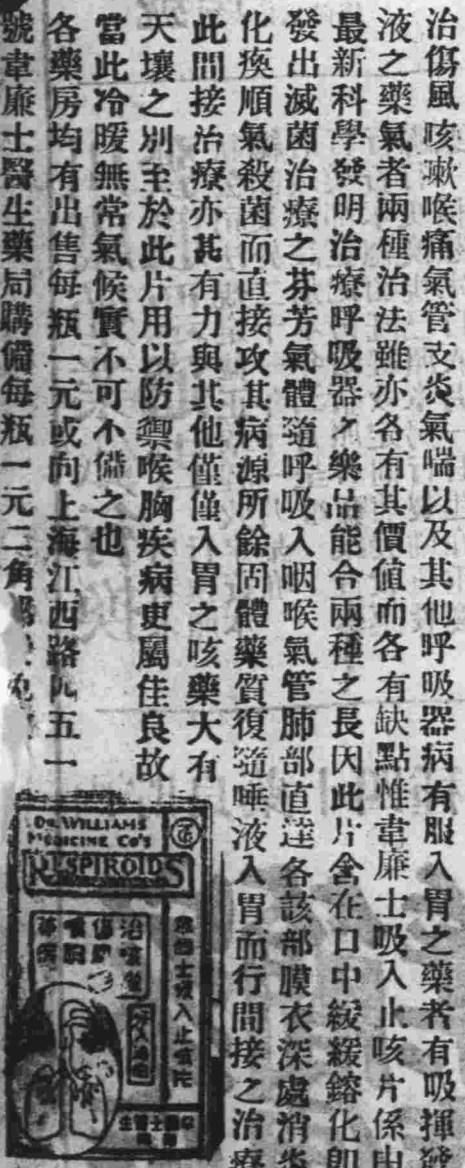 治傷風咳嗽喉痛氣管支炎氣喘以及其他呼吸器病有服入胃之藥者有吸揮發
液之藥氣者兩種治法雖亦各有其價值而各有缺點惟韋廉士吸入止咳片係由
最新科學發明治療呼吸器之藥品能合兩種之長因此片含在口中緩緩鎔化卽
發出滅菌治療之芬芳氣體隨呼吸入咽喉氣管肺部直達各該部膜衣深處消炎
化痰順氣殺菌而直接攻其病源所餘固體藥質復隨唾液入胃而行間接之治療
此間接治療亦甚有力與其他僅僅入胃之咳藥大有
天壤之別至於此片用以防禦喉胸疾病更屬佳良故
當此冷暖無常氣候實不可不備之也
各藥房均有出售每瓶一元或向上海江西路四五一
號韋廉士醫生藥局購備每瓶一元二角
DR. WILLIAMS
MEDICINE Co's
RESPIROIDS
治咳
傷